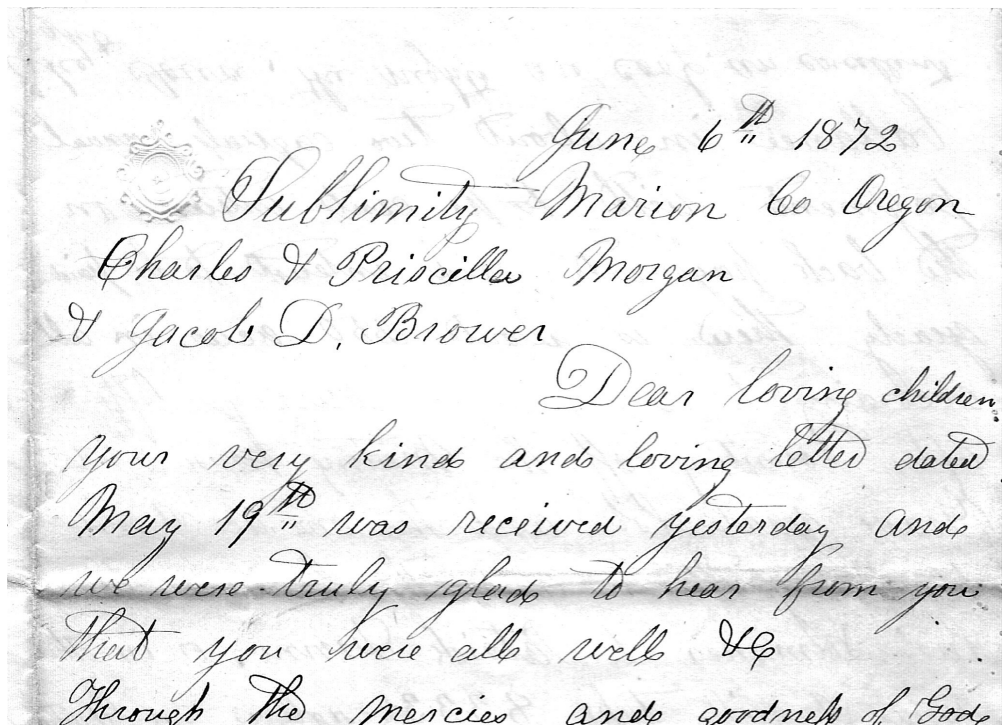 June 6th 1872
Sublimity Marion Co Oregon
Charles & Priscilla Morgan
& Jacob D. Brower
Dear loving children
your very kind and loving letter dated
May 19th was received yesterday and
we were truly glad to hear from you
that you were all well &c
Through the mercies and goodness of God